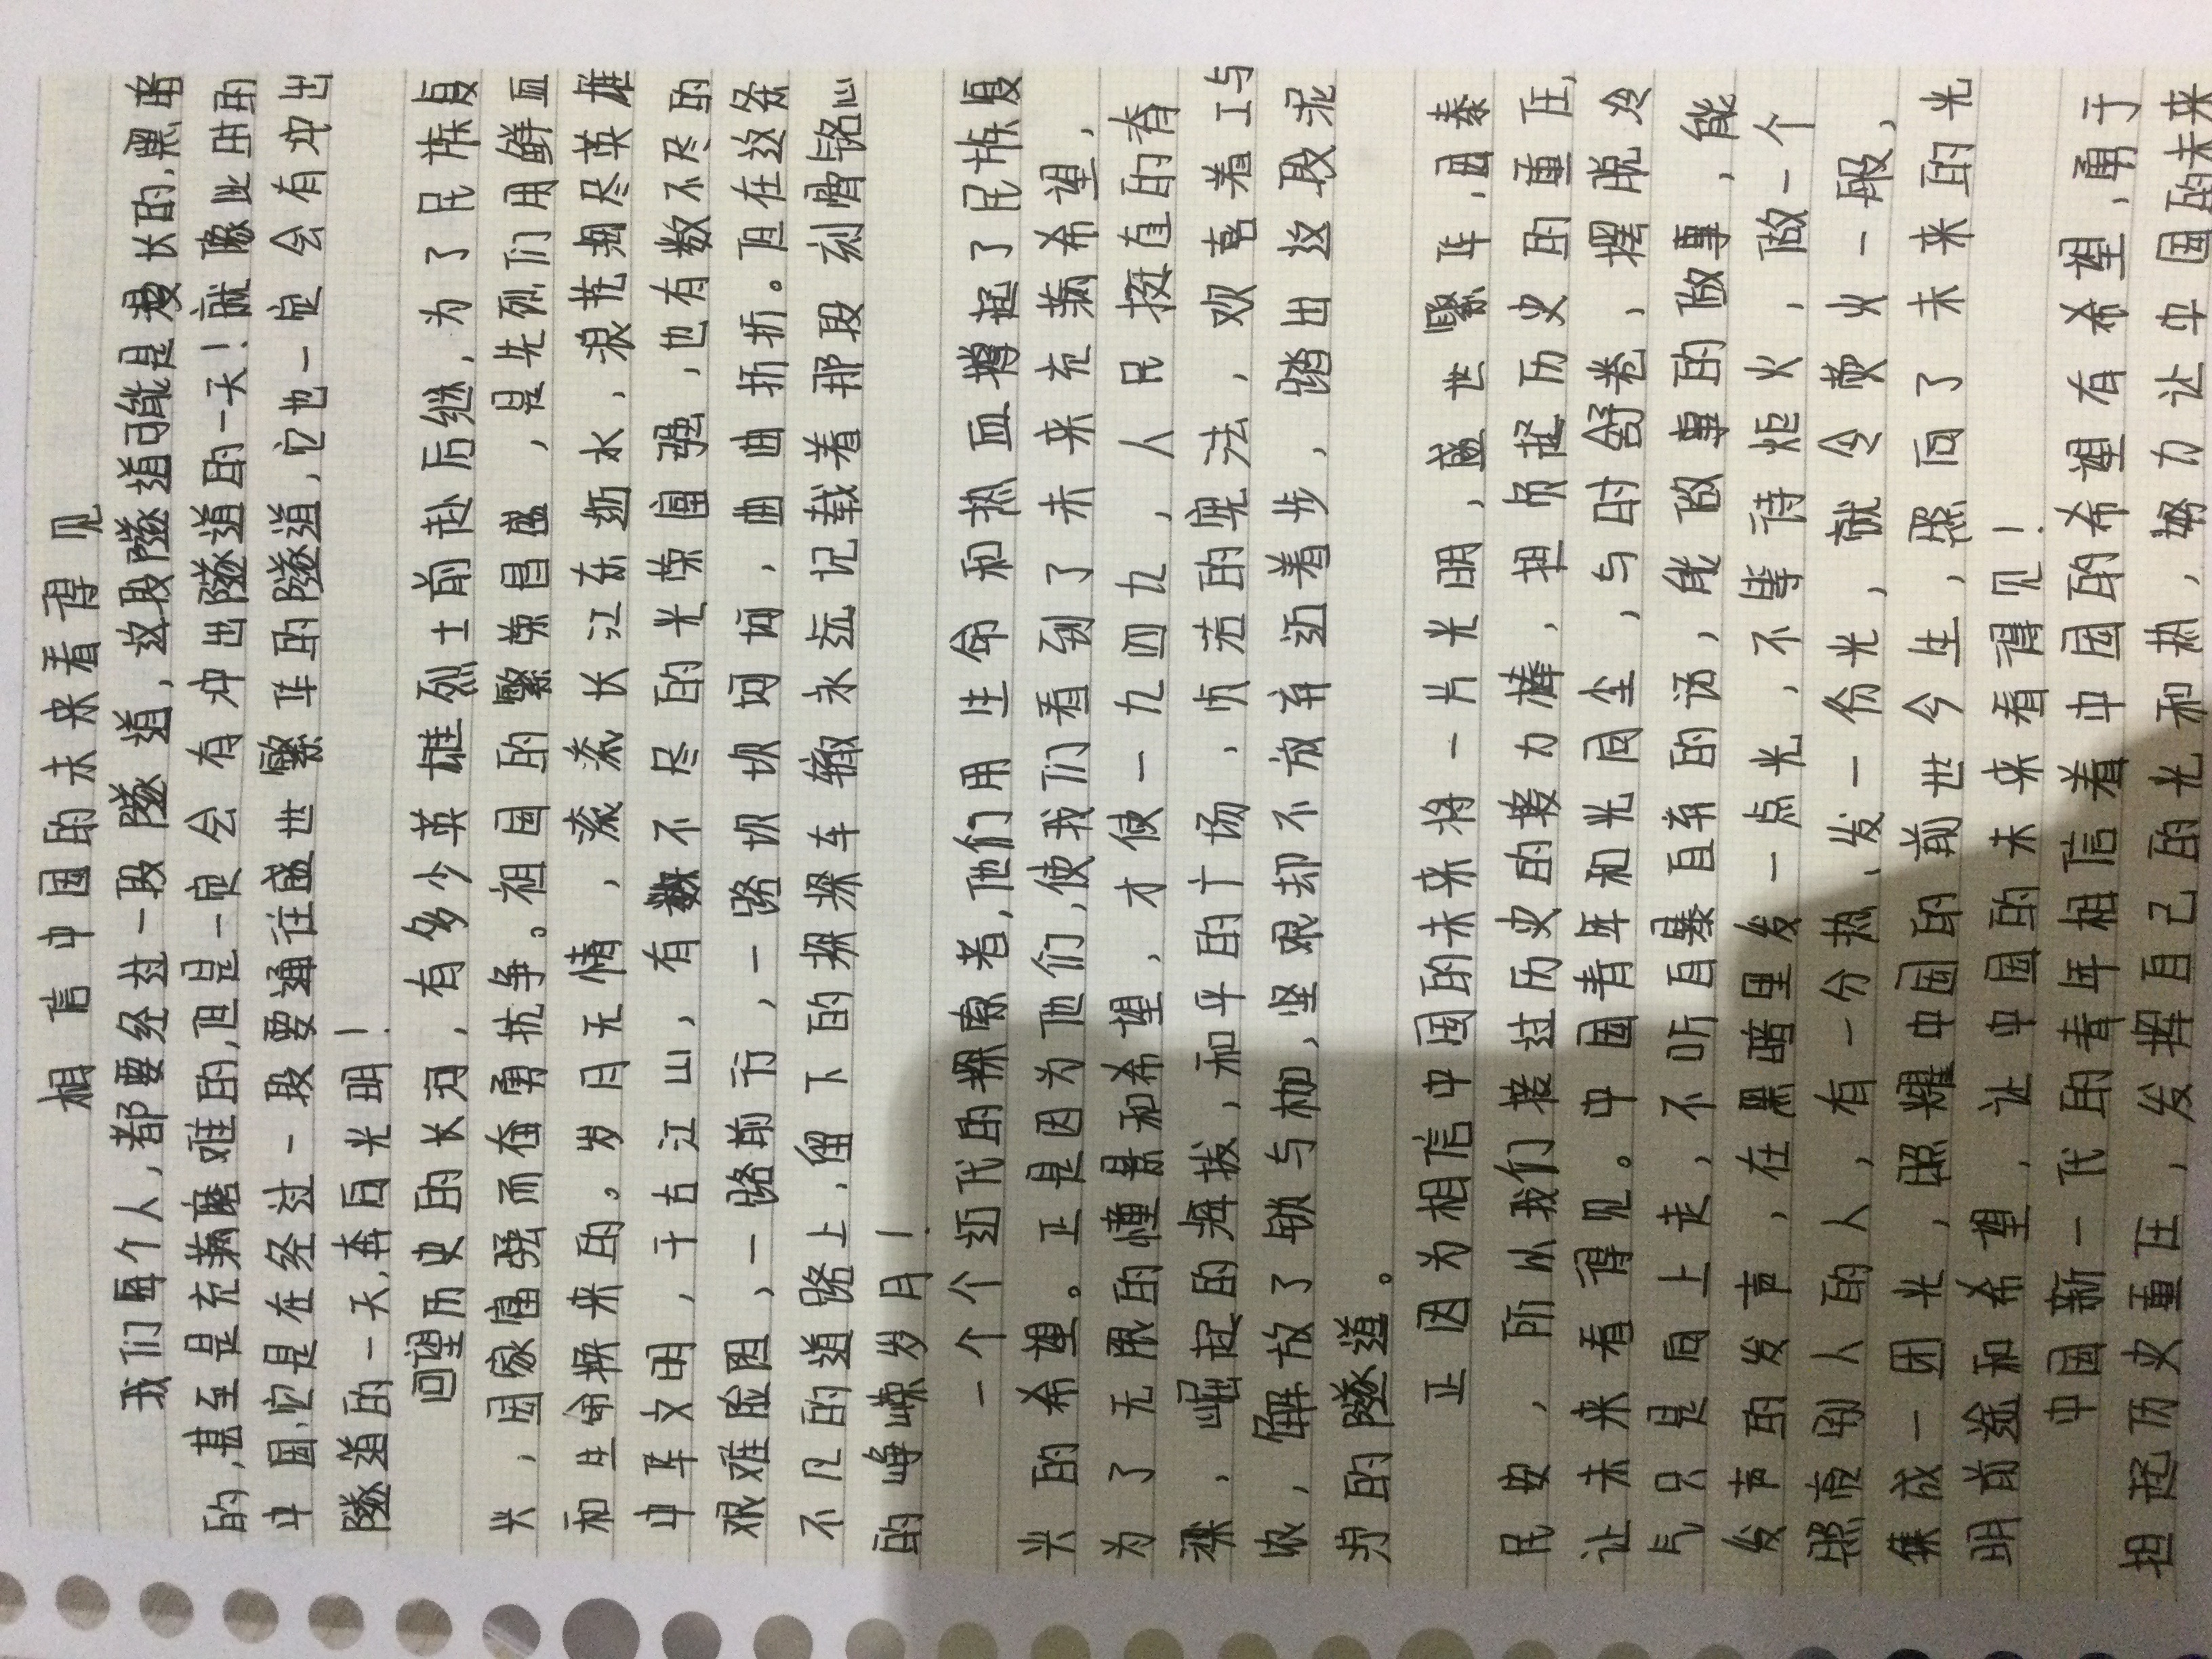 相信中国的未来看得见
我们每个人,都要经过一段隧道,这段隧道可能是漫长的,黑暗
的,甚至是充满磨难的,但是一定会有冲出隧道的一天!就像此时的
中国,它是在经过一段要通往盛世繁华的隧道,它也一定会有冲出
隧道的一天,奔向光明!
回望历史的长河,有多少英雄烈士前赴后继,为了民族复
兴,国家富强而奋勇抗争。祖国的繁荣昌盛,是先烈们用鲜血
和生命换来的。岁月无情,滚滚长江东逝水,浪花淘尽英雄
中华文明,千古江山,有数不尽的光荣富强,也有数不尽的
艰难险困,一路前行,一路坎坎坷坷,曲曲折折。但在这条
不凡的道路上,留下的深深车辙永远记载着那段刻骨铭心
的峥嵘岁月!
一个个近代的探索者,他们用生命和热血撑起了民族复
兴的希望。正是因为他们,使我们看到了未来充满希望,
为了无限的憧憬和希望,才使一九四九,人民挺直的脊
梁,崛起的挥拔,和平的广场,贞洁的宪法,欢喜着工与
农,解放了锁与枷,坚艰却不放弃迈着步,踏出这段泥
泞的隧道。
正因为相信中国的未来将一片光明,盛世繁华,国泰
民安,所以我们接过历史的接力棒,担负起历史的重任,
让未来看得见。中国青年和光同尘,与时舒卷,摆脱冷
气只是向上走,不听自暴自弃的话,能做事的做事,能
发声的发声,在黑暗里发一点光,不等待炬火,做一个
照亮别人的人,有一分热,发一份光,就令萤火一般,
集成一团光,照耀中国的前世今生,照向了未来的光
明前途和希望,让中国的未来看得见!
中国新一代的青年相信着中国的希望有希望,勇于
担起历史重任,发挥自己的光和热,努力让中国的未来